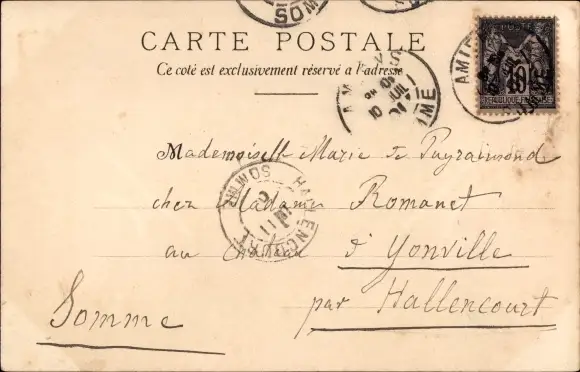 SOM
CARTE POSTALE
Ce côté est exclusivement réservé a l'adresse
AMIENS
10 JUIL
SOMME
AMIE
POSTES
10
RÉPUBLIQUE FRANÇAISE
Mademoiselle Marie de Puyraimond
chez Madame Romanet
au Chateau d'Yonville
par Hallencourt
Somme
HALLENCOURT
11
SOMME